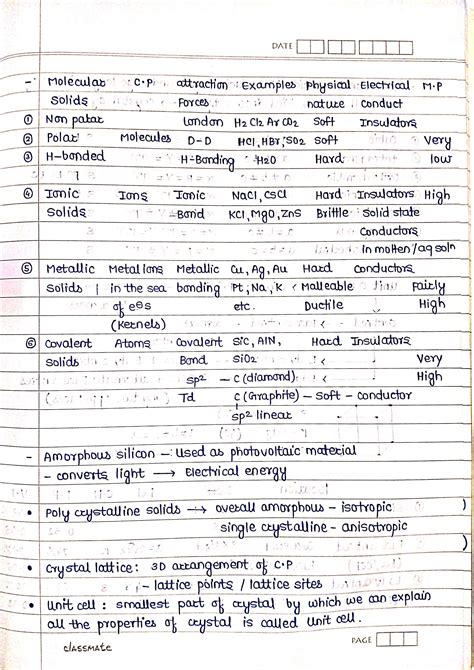 DATE
- Molecular C.P attraction Examples Physical Electrical M.P
Solids Forces nature Conduct
① Non polar London H2 Cl2 Ar CO2 Soft Insulators
② Polar Molecules D-D HCl, HBr, SO2 Soft Very
③ H-bonded H-Bonding H2O Hard low
④ Ionic Ions Ionic NaCl, CsCl Hard Insulators High
Solids Bond KCl, MgO, ZnS Brittle Solid state
Conductors
in molten/aq soln
⑤ Metallic Metal ions Metallic Cu, Ag, Au Hard Conductors
Solids in the sea bonding Pt, Na, K Malleable Fairly
of e⊖s etc. Ductile High
(Kernels)
⑥ Covalent Atoms Covalent SiC, AlN, Hard Insulators
Solids Bond SiO2 Very
sp2 - C (diamond) High
Td C (Graphite) - Soft - conductor
sp2 linear
- Amorphous silicon - Used as photovoltaic material
- converts light → Electrical energy
• Poly crystalline solids → overall amorphous - isotropic
single crystalline - anisotropic
• Crystal lattice : 3D arrangement of C.P
- lattice points / lattice sites
• Unit cell : smallest part of crystal by which we can explain
all the properties of crystal is called Unit cell.
classmate
PAGE